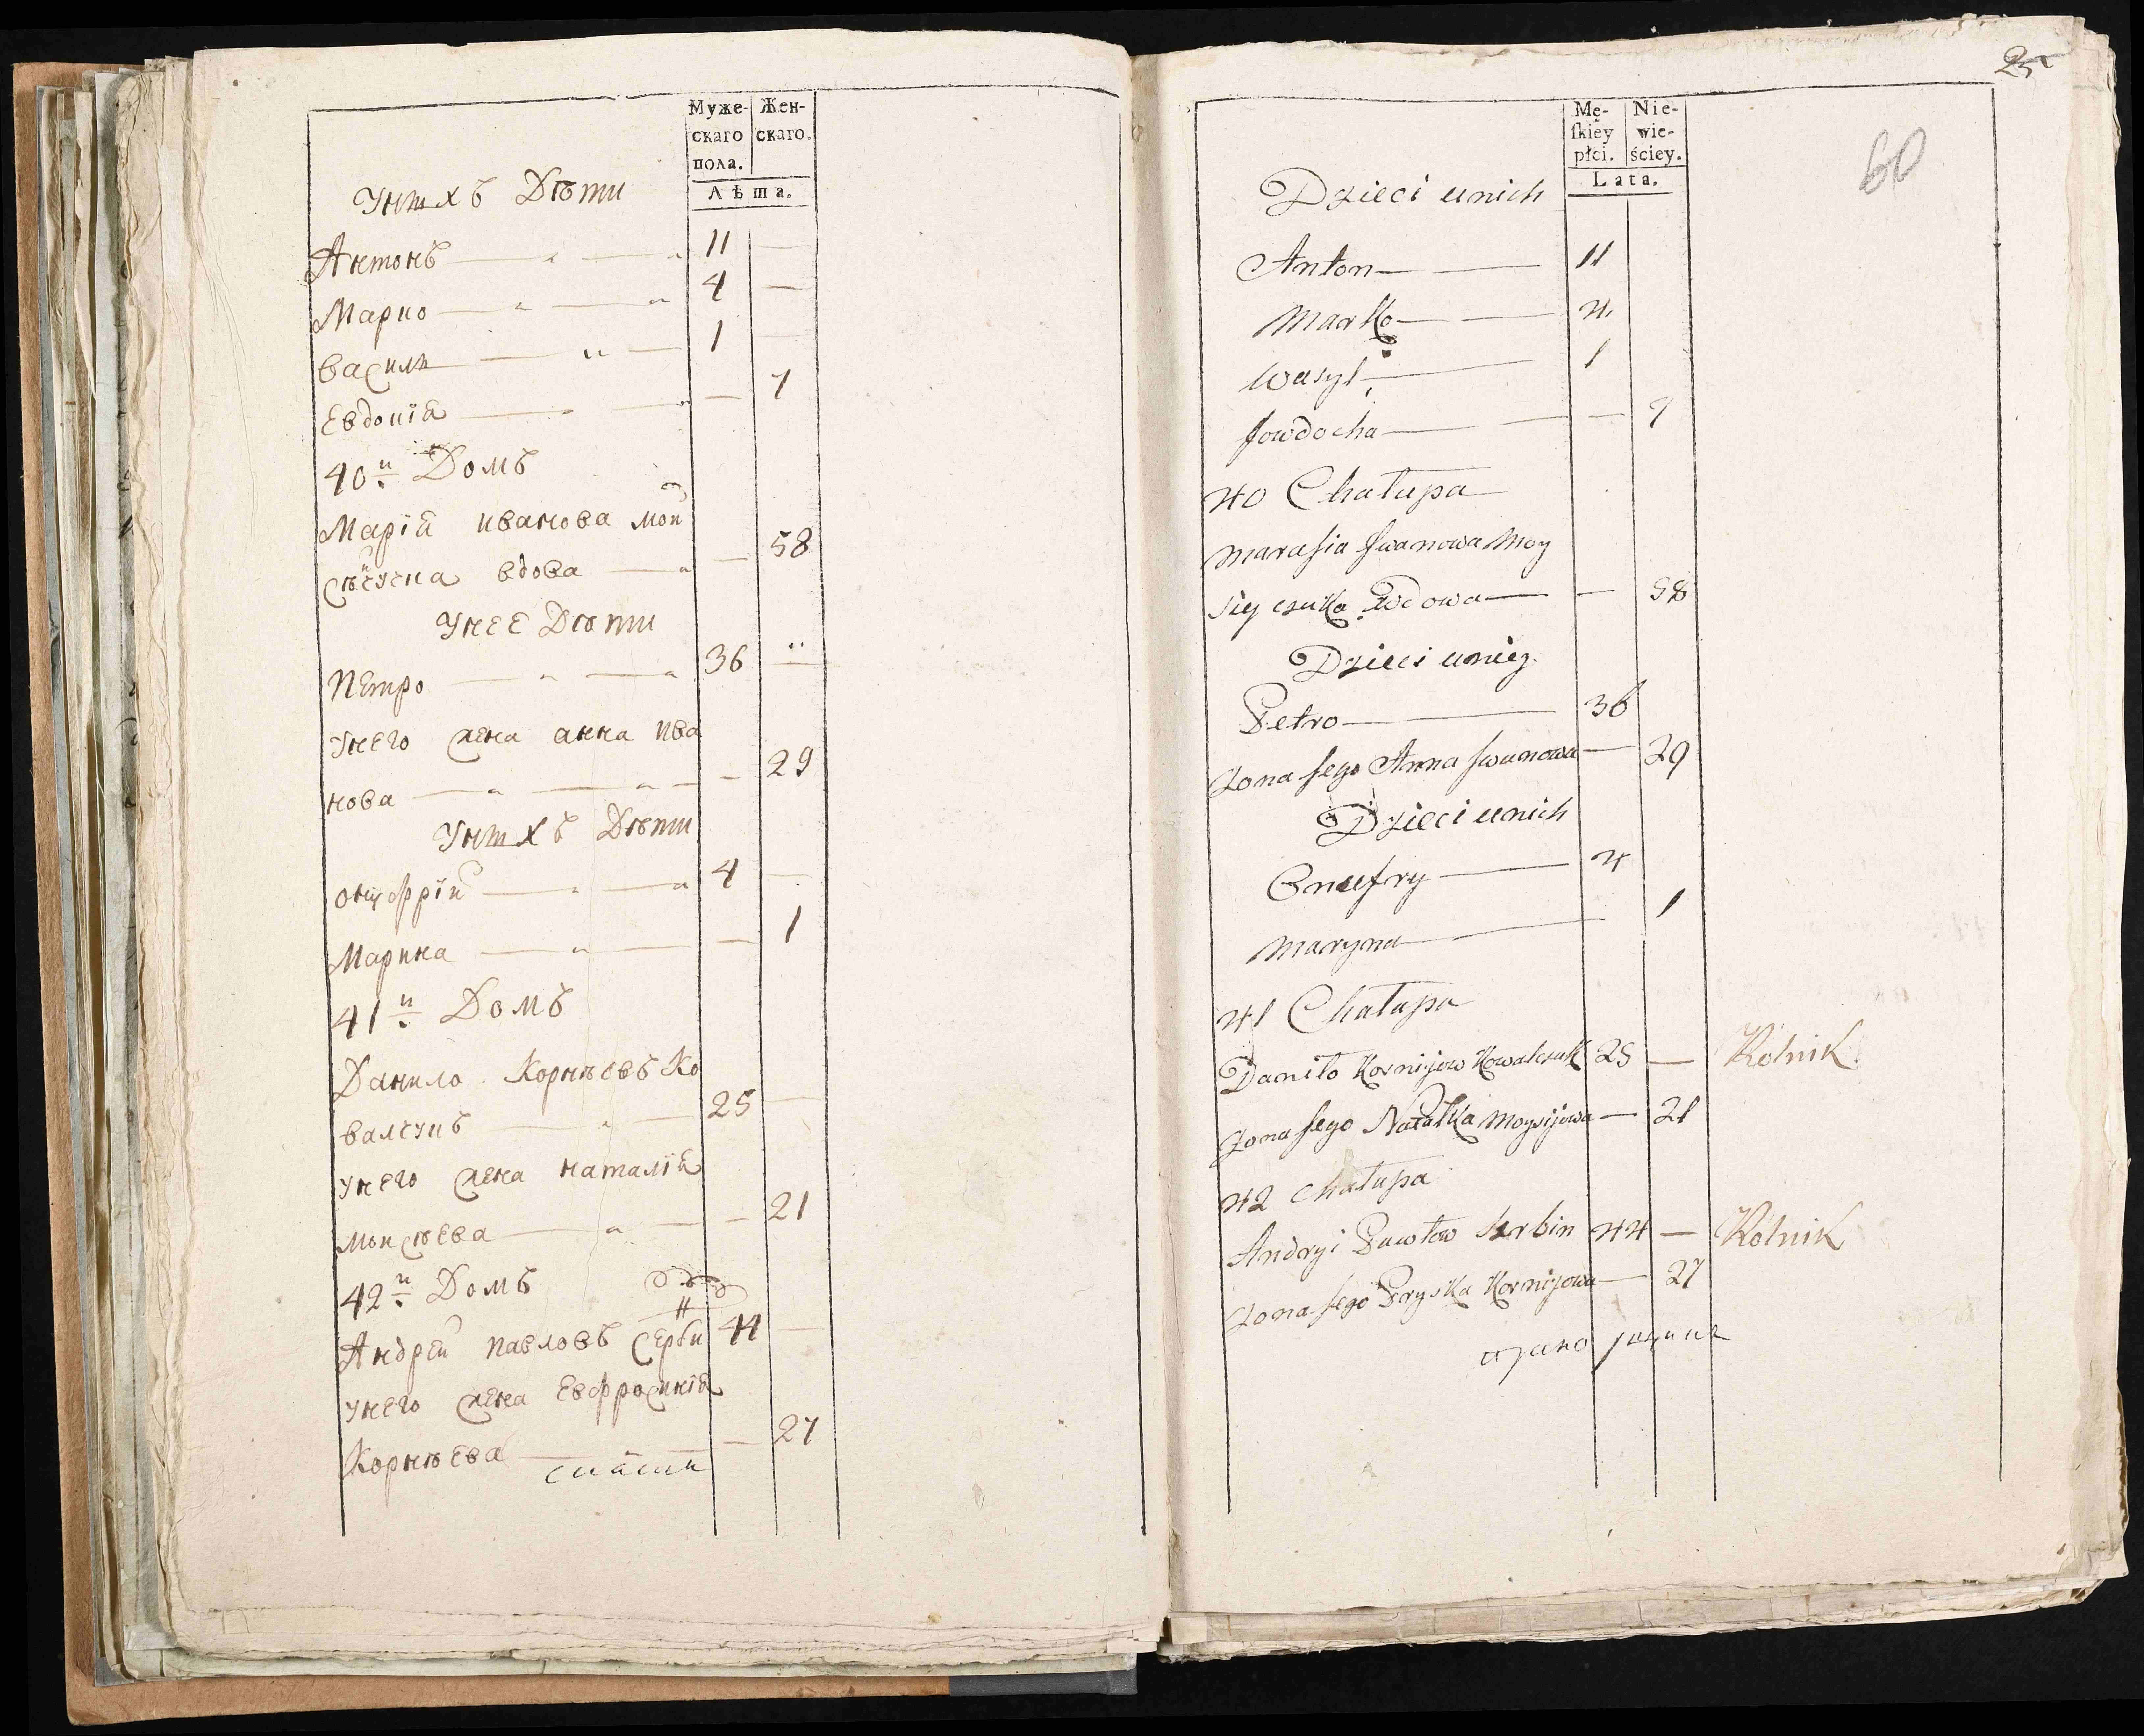 Муже-
скаго
пола.
Жен-
скаго.
Лѣта.
Унихъ Дѣти
Антонъ 11
Марко 4
Василь 1
Евдокіа 7
40й Домъ
Маріа Иванова Мой
сѣйчука вдова 58
Унее Дѣти
Петро 36
Унего жена анна Ива
нова 29
Унихъ Дѣти
Онуфрій 4
Марина 1
41й Домъ
Данило Корнѣевъ Ко
валчукъ 25
Унего жена наталіа
Мойсѣева 21
42й Домъ
Андрей Павловъ Серби 44
н
Унего жена Евфросиніа
Корнѣева 27
25
60
Mę-
ſkiey
płci.
Nie-
wie-
ściey.
Lata.
Dzieci unich
Anton 11
Marko 4
Wasyl 1
Jowdocha 7
40 Chałupa
Marusia Jwanowa Moy
siy czuka Wdowa 58
Dzieci uniey
Petro 36
Zona Jego Anna Jwanowa 29
Dzieci unich
Onufry 4
Maryna 1
41 Chałupa
Daniło Kornijow Kowalczuk 25 Rolnik
Zona Jego Natałka Moysijowa 21
42 Chałupa
Andryi Pawłow Serbin 44 Rolnik
Zona Jego Pryska Kornijowa 27